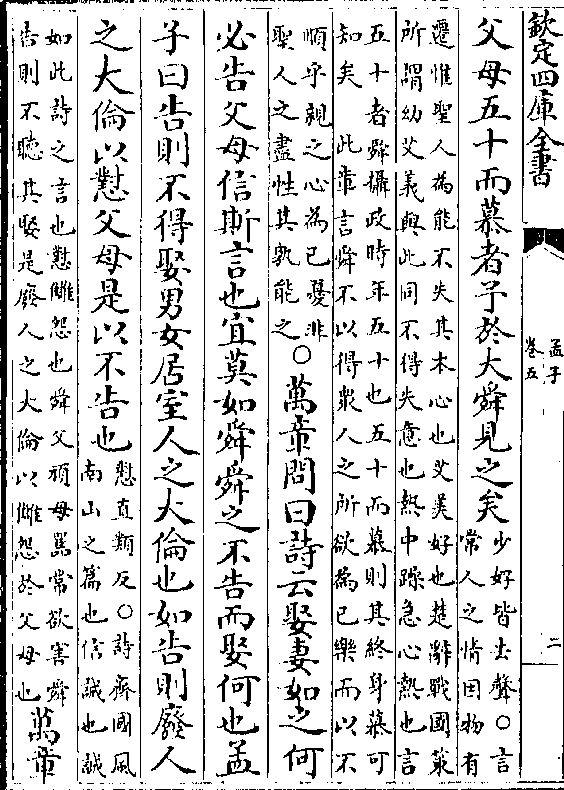 欽定四庫全書
孟子
卷五
二
父母五十而慕者予於大舜見之矣少好皆去聲○言
常人之情因物有
遷惟聖人為能不失其本心也艾美好也楚辭戰國策
所謂幼艾義與此同不得失意也熱中躁急心熱也言
五十者舜攝政時年五十也五十而慕則其終身慕可
知矣 此章言舜不以得衆人之所欲為已樂而以不
順乎親之心為已憂非
聖人之盡性其孰能之
○萬章問曰詩云娶妻如之何
必告父母信斯言也宜莫如舜舜之不告而娶何也孟
子曰告則不得娶男女居室人之大倫也如告則廢人
之大倫以懟父母是以不告也懟直類反○詩齊國風
南山之篇也信誠也誠
如此詩之言也懟讎怨也舜父頑母嚚常欲害舜
告則不聽其娶是廢人之大倫以讎怨於父母也
萬章